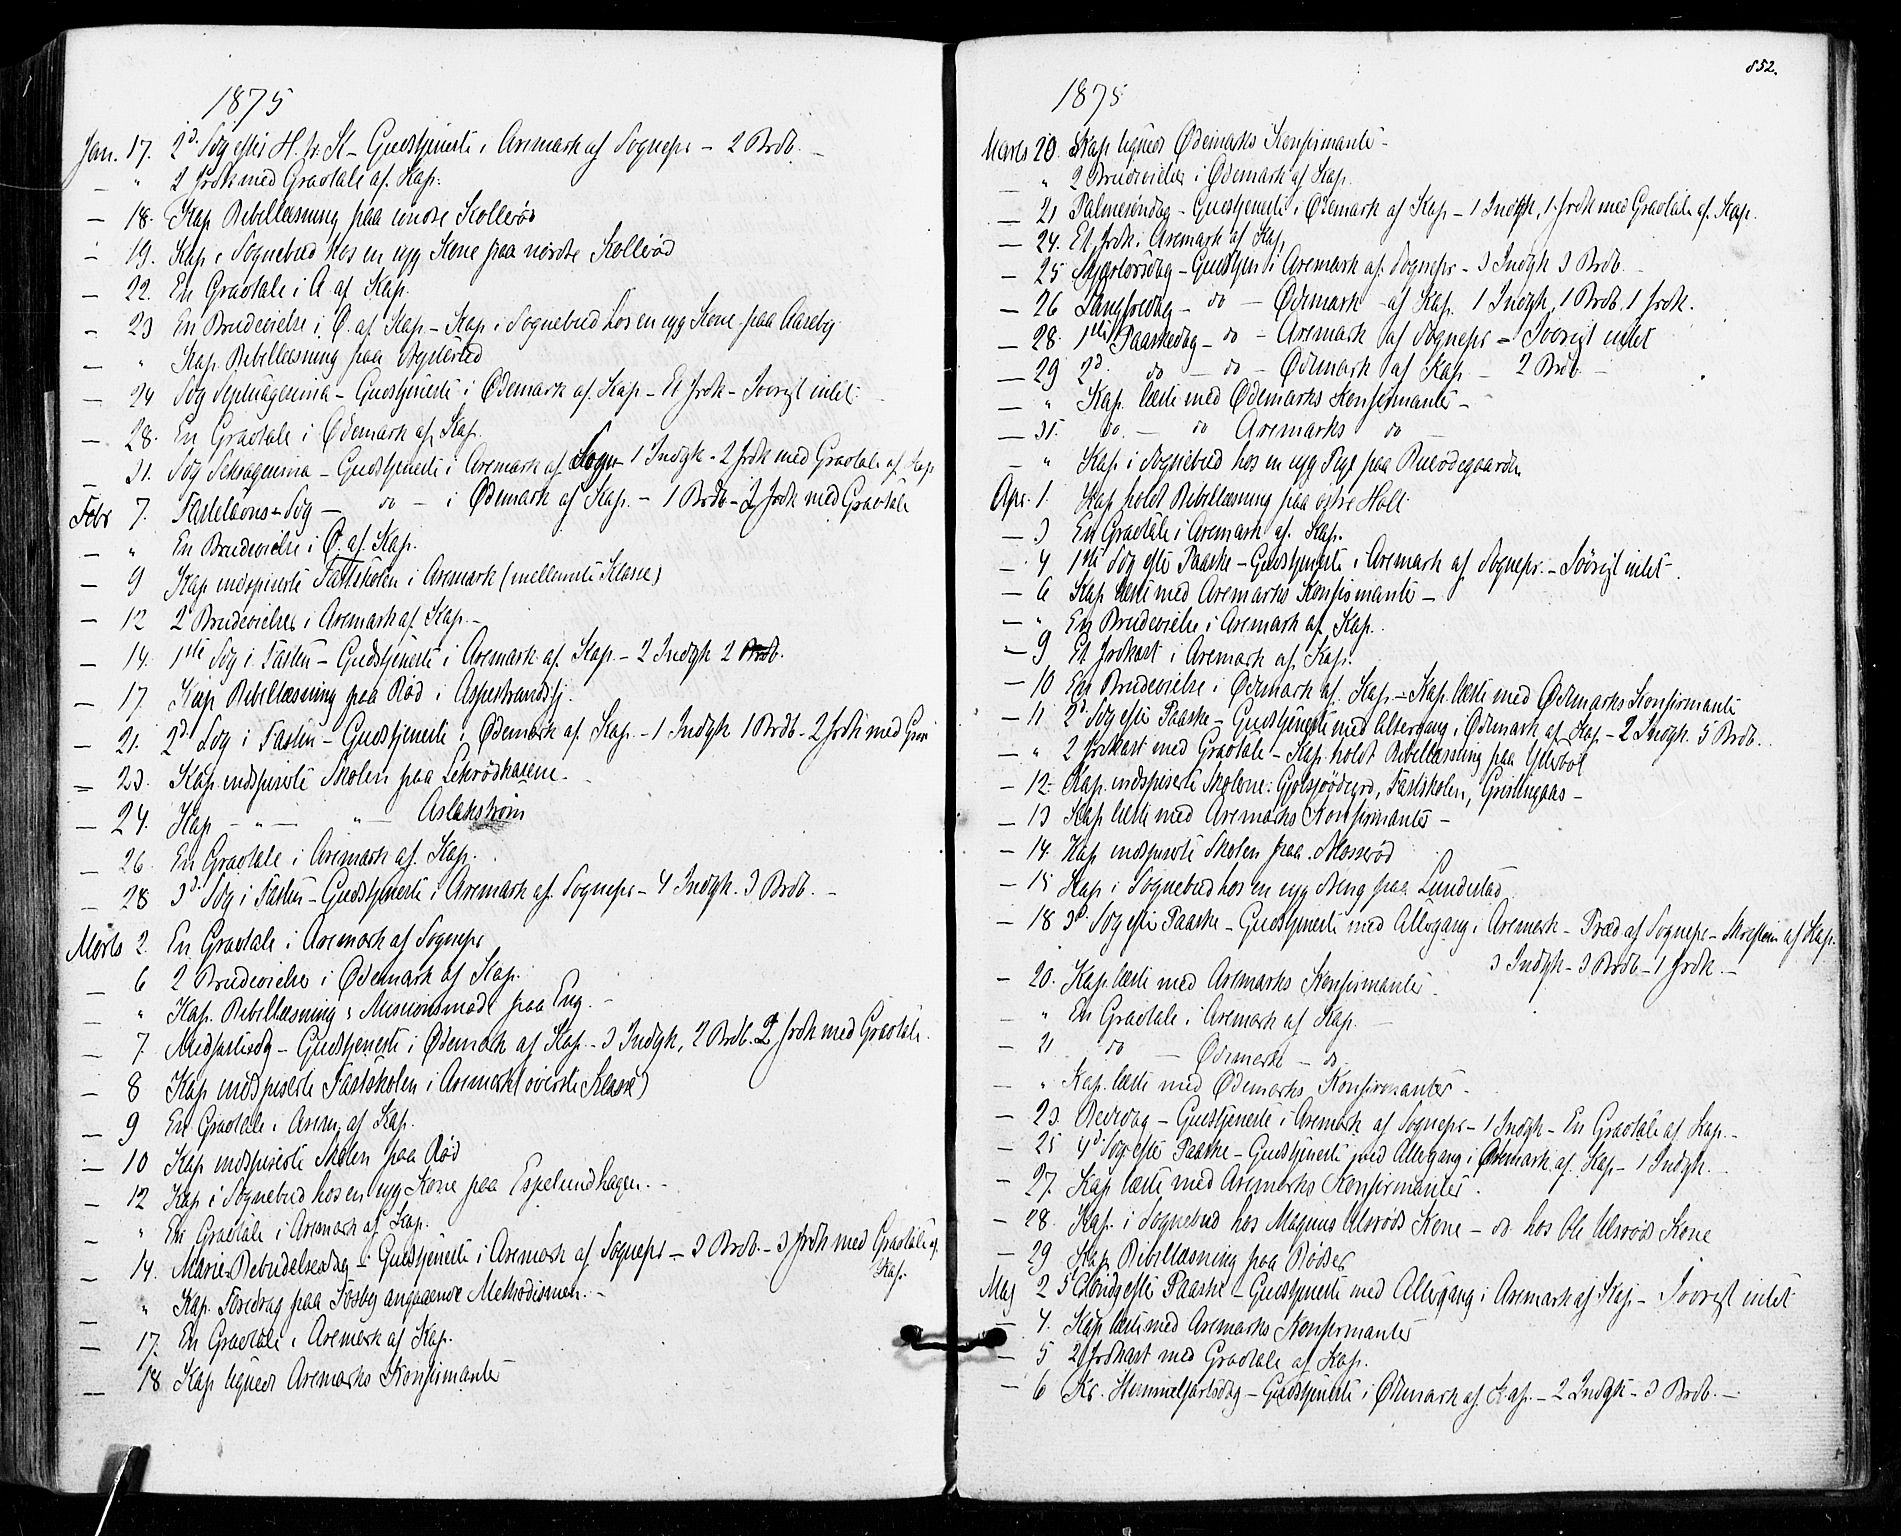 1875
Jan. 17. 2d Søg efter H. tr. K – Gudstjeneste i Aremark af Sognepr – 2 Brdb. –
– " 2 Jrdk med Gravtale af Kap.
– 18. Kap Bibellæsning paa søndre Kollerød
– 19. Kap i Sognebud hos en syg Kone paa nordre Kollerød
– 22. En Gravtale i A af Kap.
– 23 En Brudevielse i Ø. af Kap – Kap i Sognebud hos en syg Kone paa Aareby
– " Kap. Bibellæsning paa
– 24 Søg Septuagesima – Gudstjeneste i Ødemark af Kap – Et Jrdk – Iøvrigt intet.
– 28. En Gravtale i Ødemark af Kap.
– 31. Søg Seksagesima – Gudstjeneste i Aremark af Sogn – 1 Indgk – 2 Jrdk med Gravtale af Kap
Febr 7. Fastelavns-Søg – do – i Ødemark af Kap. – 1 Brdb – 2 Jrdk med Gravtale
– " En Brudevielse i Ø. af Kap.
– 9 Kap indspiserte Fastskolen i Aremark (mellemste Klasse)
– 12 2 Brudevielser i Aremark af Kap. –
– 14. 1ste Søg i Fasten – Gudstjeneste i Aremark af Kap – 2 Indgk 2 Brdb.
– 17. Kap Bibellæsning paa Rød i Aspestrandsfj
– 21. 2d Søg i Fasten – Gudstjeneste i Ødemark af Kap. – 1 Indgk 1 Brdb – 2 Jrdk med Grav
– 23. Kap indspiserte Skolen paa Lekrødkasene –
– 24. Kap – " – " – Aslakstrøm
– 26. En Gravtale i Aremark af Kap.
– 28 3d Søg i Fasten – Gudstjeneste i Aremark af Sognepr – 4 Indgk. 3 Brdb. –
Marts 2. En Gravtale i Aremark af Sognepr
– 6 2 Brudevielser i Ødemark af Kap.
– " Kap. Bibellæsning i Missionsmøde paa Eng. –
– 7. Midfastesdg – Gudstjeneste i Ødemark af Kap – 3 Indgk, 2 Brdb. 2 Jrdk med Gravtale.
– 8 Kap indspiserte Fastskolen i Aremark (øverste Klasse)
– 9 En Gravtale i Arem af Kap.
– 10 Kap indspiserte Skolen paa Rød
– 12 Kap i Sognebud hos en syg Kone paa Espelundhagen. –
– " En Gravtale i Aremark af Kap.
– 14. Mariæ-Bebudelsesdag – Gudstjeneste i Aremark af Sognepr – 3 Brdb. – 3 Jrdk med Gravtale af
Kap.
– " Kap. Foredrag paa Fosby angaaende Methodismen. –
– 17. En Gravtale i Aremark af Kap.
– 18 Kap lignede Aremarks Konfirmanter
852.
1875
Marts 20. Kap lignede Ødemarks Konfirmanter –
– " 2 Brudevielser i Ødemark af Kap.
– 21 Palmesøndag – Gudstjeneste i Ødemark af Kap – 1 Indgk, 1 Jrdk med Gravtale af Kap.
– 24. Et Jrdk i Aremark af Kap
– 25 Skjærtorsdag – Gudstjen i Aremark af Sognepr – 3 Indgk 3 Brdb. –
– 26 Langfredag – do – Ødemark – af Kap. 1 Indgk, 1 Brdb. 1 Jrdk.
– 28. 1ste Paaskedag – do – Aremark af Sognepr – Iøvrigt intet
– 29 2d do – do – Ødemark af Kap – 2 Brdb –
– " Kap. læste med Ødemarks Konfirmanter –
– 31. do. – do Aremarks do –
– " Kap i Sognebud hos en syg Pige paa Buødegaarden
Apr. 1. Kap holdt Bibellæsning paa østre Holt
– 3 En Gravtale i Aremark af Kap.
– 4 1ste Søg efter Paaske – Gudstjeneste i Aremark af Sognepr. – Iøvrigt intet.
– 6 Kap læste med Aremarks Konfirmanter –
– " En Brudevielse i Aremark af Kap.
– 9 Et Jrdkast i Aremark af Kap.
– 10 En Brudevielse i Ødemark af Kap – Kap. læste med Ødemarks Konfirmanter
– 11 2d Søg efter Paaske – Gudstjeneste med Altergang i Ødemark af Kap – 2 Indgk. 5 Brdb.
– " 2 Jrdkast med Gravtale – Kap holdt Bibellæsning paa Ytterbøl
– 12. Kap. indspiserte Skolerne: Gjølsjøødegrd, Fastskolen, Grislingaas –
– 13 Kap læste med Aremarks Konfirmanter –
– 14. Kap indspiserte Skolen paa Mosserød
– 15 Kap i Sognebud hos en syg Dreng paa Lundestad
– 18 3d Søg efter Paaske – Gudstjeneste med Altergang i Aremark – Præd af Sognepr – Skriftem af Kap.
3 Indgk – 3 Brdb – 1 Jrdk. –
– 20. Kap. læste med Aremarks Konfirmanter.
– " En Gravtale i Aremark af Kap. –
– 21 do – Ødemark – do.
– " Kap. læste med Ødemarks Konfirmanter –
– 23. Bededag – Gudstjeneste i Aremark af Sognepr – 1 Indgk – En Gravtale af Kap. –
– 25 4d Søg efter Paaske – Gudstjeneste med Altergang i Aremark af Kap – 1 Indgk.
– 27. Kap læste med Aremarks Konfirmanter.
– 28. Kap. i Sognebud hos Magnus Ulsrøds Kone – do hos Ole Ulsrøds Kone
– 29 Kap Bibellæsning paa Bødser
Maj 2 5 Søndg efter Paaske – Gudstjeneste med Altergang i Aremark af Kap – Iøvrigt intet
– 4. Kap læste med Aremarks Konfirmanter
– 5 2 Jrdkast med Gravtale af Kap.
– 6 Kr. Himmelfartsdag – Gudstjeneste i Ødemark af Kap. – 2 Indgk – 3 Brdb. –